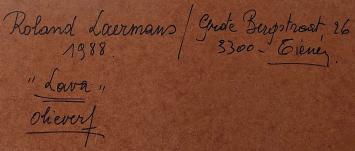 Roland Laermans / Grote Bergstraat, 26
1988. 3300 - Tienen.
"Lava"
olieverf